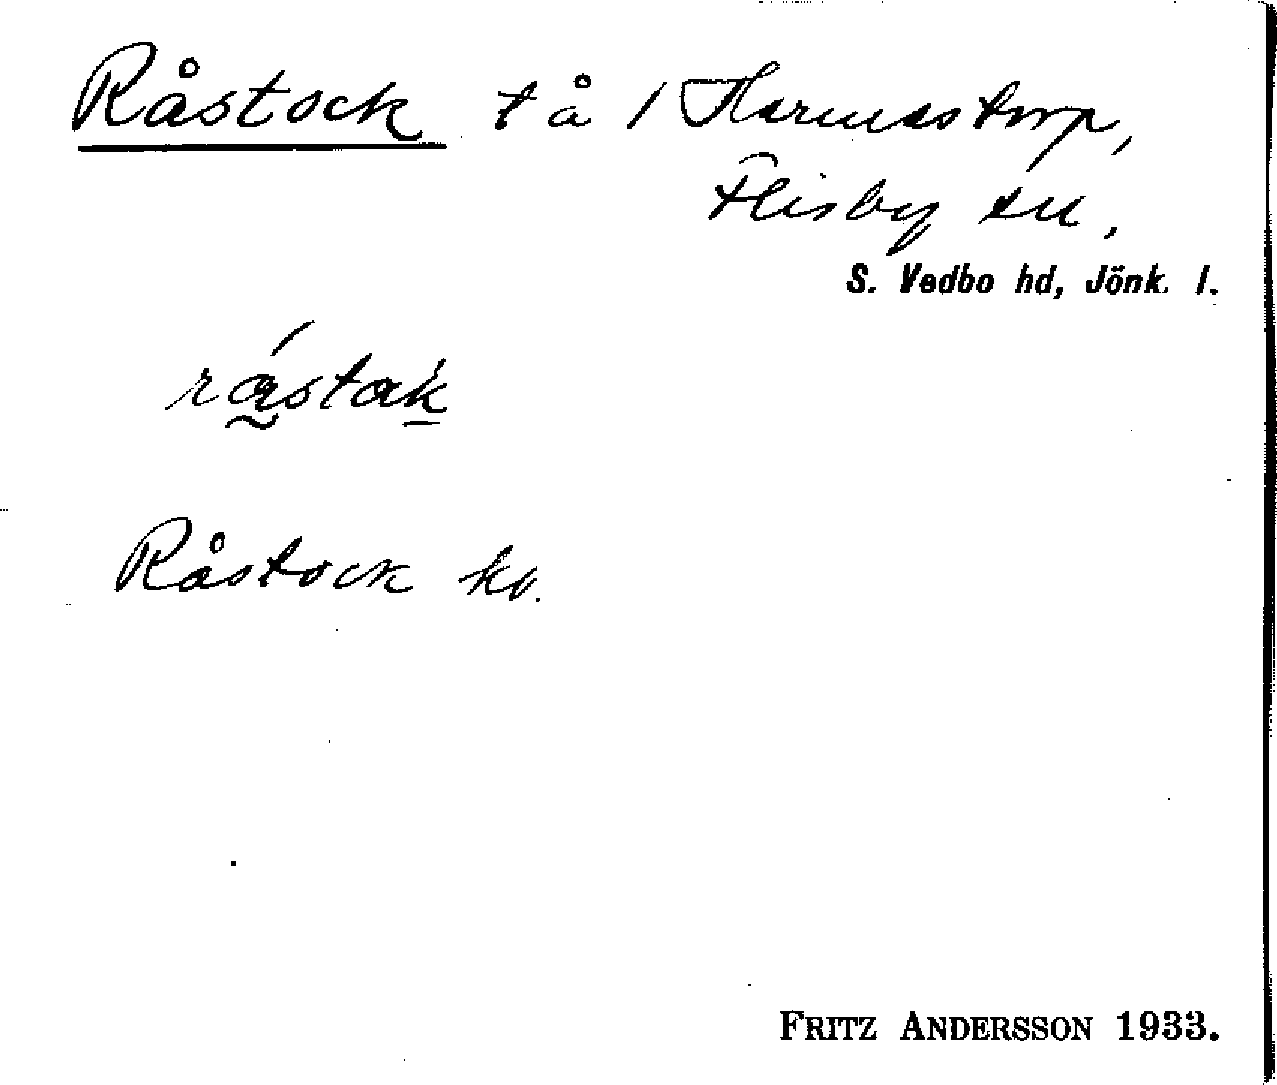 Råstock t å 1 Harmastorp,
Flisby sn,
S. Vedbo hd, Jönk. l.
råstak
Råstock kv.
FRITZ ANDERSSON 1933.